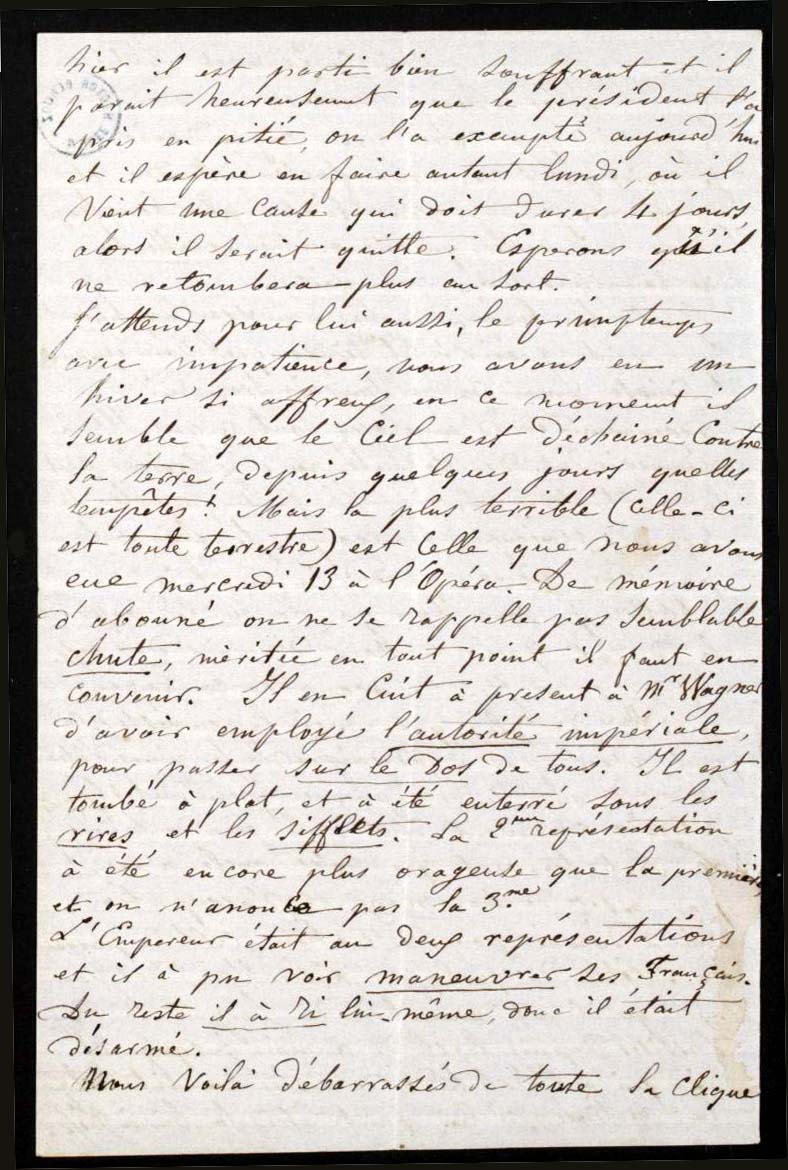 hier il est parti bien souffrant et il
parait heureusement que le président l'a
pris en pitié, on l'a exempté aujourd'hui
et il espère en faire autant lundi, où il
vient une cause qui doit durer 4 jours,
alors il serait quitte. Esperons qu'il
ne retombera plus au sort.
J'attends pour lui aussi, le printemps
avec impatience, nous avons eu un
hiver si affreux, en ce moment il
semble que le Ciel est déchainé Contre
la terre, depuis quelques jours quelles
tempêtes! Mais la plus terrible (celle-ci
est toute terrestre) est Celle que nous avons
eue mercredi 13 à l'Opéra. De mémoire
d'abonné on ne se rappelle pas semblable
chute, mèritée en tout point il faut en
convenir. Il en Cuit à present à Mr Wagner
d'avoir employé l'autorité impériale,
pour passer sur le Dos de tous. Il est
tombé à plat, et à été enterré sous les
rires et les sifflets. La 2me représentation
à été encore plus orageuse que la première,
et on n'anonce pas la 3.me
L'Empereur était au deux représentations
et il à pu voir maneuvrer ses Français.
Du reste il à ri lui-même, donc il était
désarmé.
Nous Voilà débarrassés de toute la clique